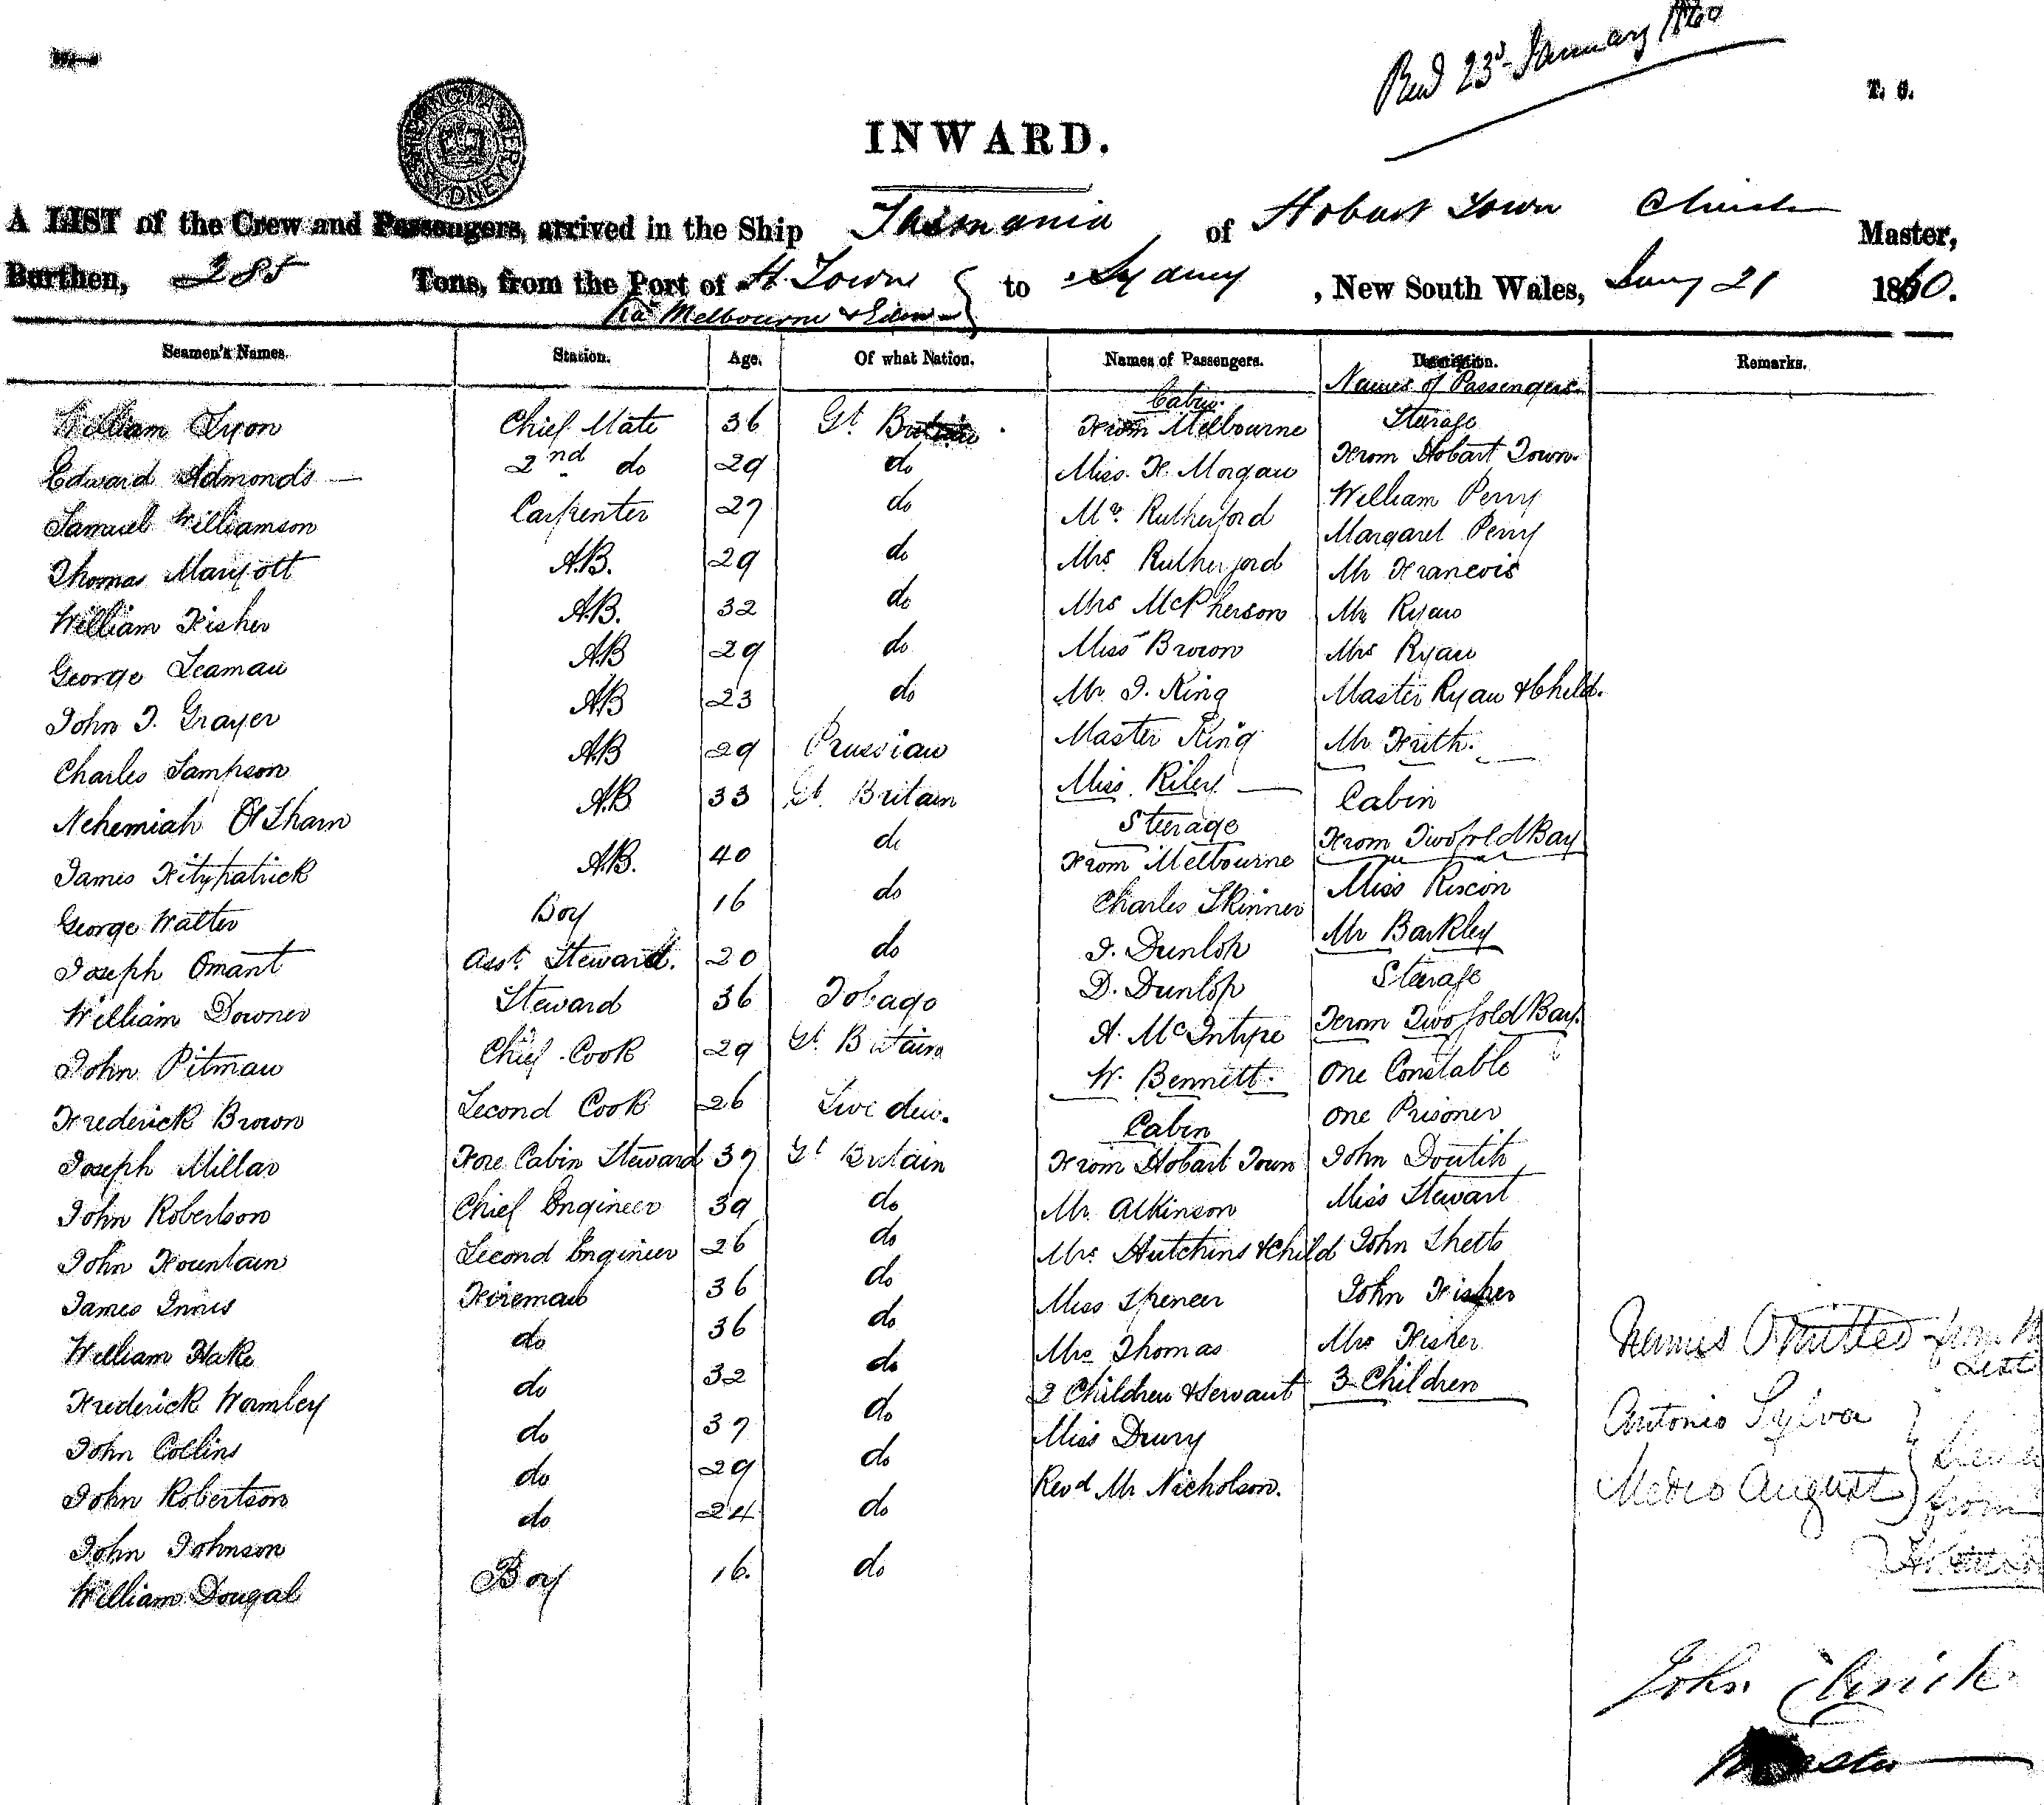 Recd 23rd January 1860
T. S.
SHIPPING MASTER SYDNEY
INWARD.
A LIST of the Crew and Passengers, arrived in the Ship Tasmania of Hobart Town Clinch Master,
Burthen, 285 Tons, from the Port of H. Town to Sydney, New South Wales, Jany 21 1860.
Via Melbourne & Eden
Seamen's Names. Station. Age. Of what Nation. Names of Passengers. Description. Remarks.
Names of Passengers.
William Lyon Chief Mate 36 Gt. Britain Cabin. Steerage
From Melbourne From Hobart Town.
Edward Admonds 2nd do 29 do Miss. F. Morgan William Perry
Samuel Williamson Carpenter 27 do Mr. Rutherford Margaret Perry
Thomas Maryott A.B. 29 do Mrs Rutherford Mr Francois
William Fisher A.B. 32 do Mrs McPherson Mr Ryan
George Seaman A.B 29 do Miss Brown Mrs Ryan
John J. Grayer A.B 23 do Mr J. King Master Ryan & Child.
Charles Sampson A.B 29 Prussian Master King Mr Frith.
Nehemiah A.B 33 Gt. Britain Miss. Riley Cabin
Steerage From Twofold Bay
James Fitzpatrick A.B. 40 do From Melbourne Miss
George Walter Boy 16 do Charles Skinner Mr Barkley
Joseph Omant Asst. Steward. 20 do J. Dunlop Steerage
William Downer Steward 36 Tobago D. Dunlop From Twofold Bay.
John Pitman Chief Cook 29 Gt. Britain A. McIntyre One Constable
Frederick Brown Second Cook 26 Sweden. W. Bennett. One Prisoner
Cabin
Joseph Millar Fore Cabin Steward 37 Gt Britain From Hobart Town John Doutch
John Robertson Chief Engineer 39 do Mr. Atkinson Miss Stewart
John Fountain Second Engineer 26 do Mrs. Hutchins & Child John
James Innis Fireman 36 do Miss Spencer John Fisher
William Hake do 36 do Mrs Thomas Mrs Fisher
Frederick Wormley do 32 do 2 Children & Servant 3 Children
John Collins do 37 do Miss Drury
John Robertson do 29 do Revd Mr Nicholson.
John Johnson do 24 do
William Dougal Boy 16. do
Names Omitted from
List
Antonio Sylva
August
from
John Clinch
Master